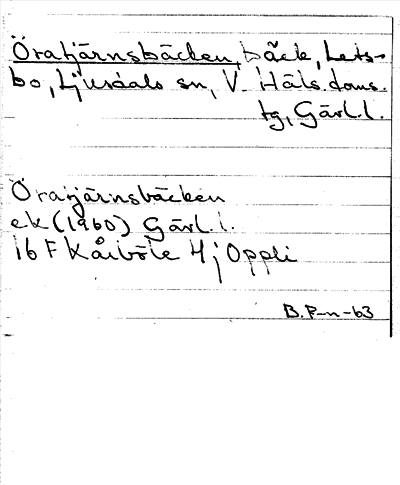 Öratjärnsbäcken, bäck, Lets-
bo, Ljusdals sn, V. Häls. doms.
tg, Gävl. l.
Öratjärnsbäcken
ek (1960) Gävl. l.
16 F Kårböle 4 j Oppli
B. P-n-63